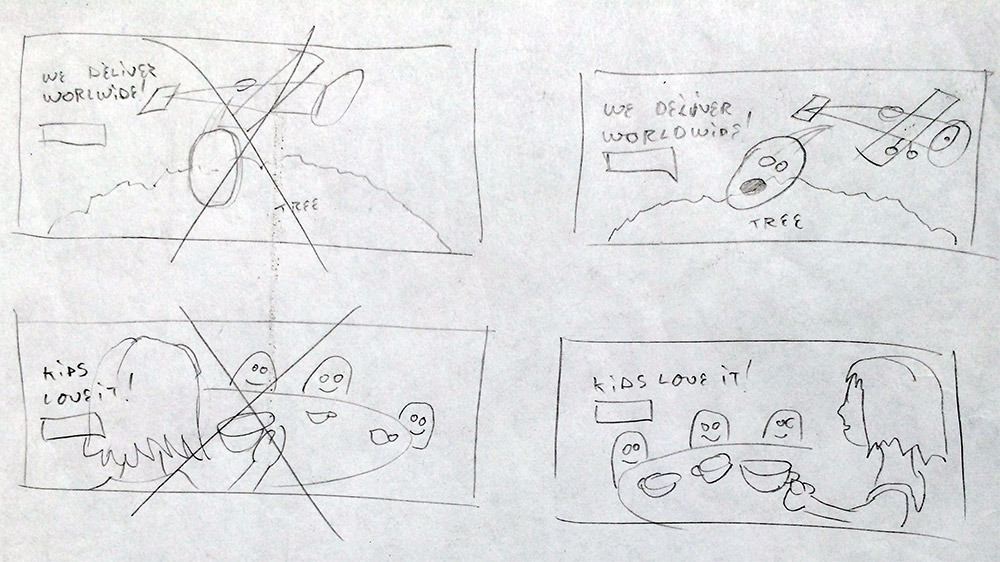 WE DELIVER
WORLWIDE!
TREE
WE DELIVER
WORLDWIDE!
TREE
KIDS
LOVE IT!
KIDS LOVE IT!